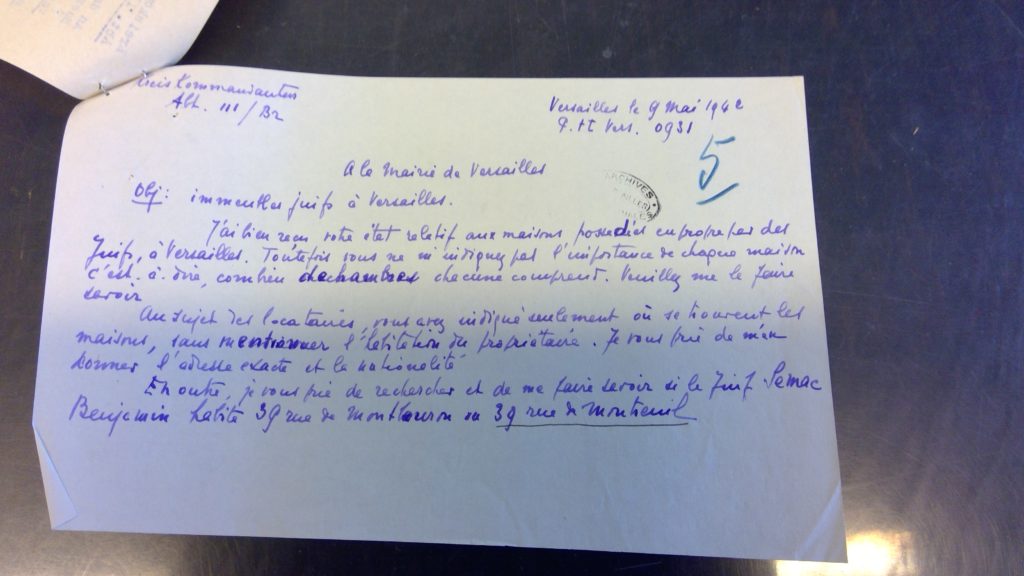 Kreis Kommandantur
Abt. III / Br
Versailles le 9 Mai 1942
P.St Vers. 0931
5
A la Mairie de Versailles
ARCHIVES
Obj: immeubles juifs à Versailles.
J'ai bien reçu votre état relatif aux maisons possedées en propre par des
Juifs, à Versailles. Toutefois vous ne m'indiquez pas l'importance de chaque maison
c'est-à-dire, combien de chambres chacune comprend. Veuillez me le faire
savoir
Au sujet des locataires, vous avez indiqué seulement où se trouvent les
maisons, sans mentionner l'habitation du propriétaire. Je vous prie de m'en
donner l'adresse exacte et la nationalité
En outre, je vous prie de rechercher et de me faire savoir si le Juif Semac
Benjamin habite 39 rue de Montbauron ou 39 rue de Montreuil